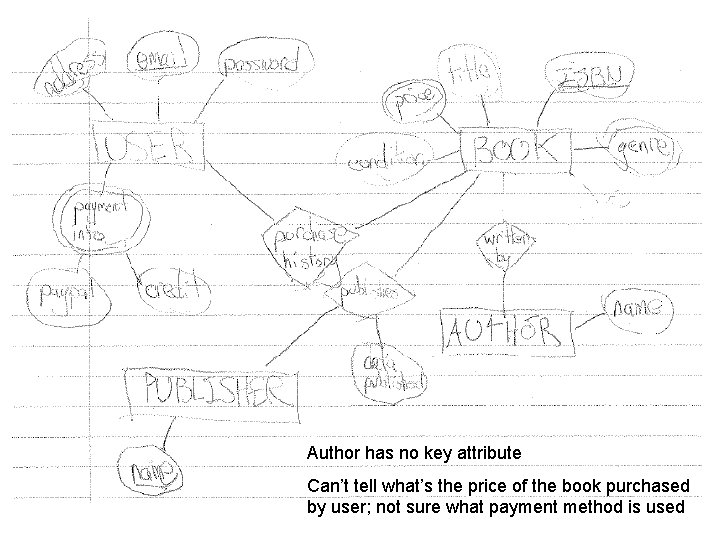 address
email
password
title
ISBN
price
USER
condition
BOOK
genre
payment
info
purchase
history
written
by
paypal
credit
publishes
AUTHOR
name
PUBLISHER
published
name
Author has no key attribute
Can't tell what's the price of the book purchased
by user; not sure what payment method is used